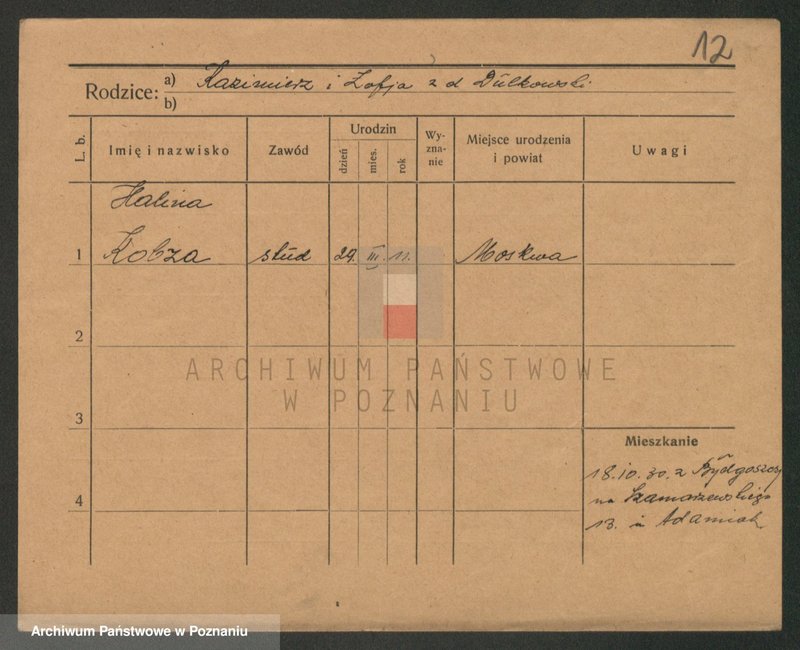 12
Rodzice: a) Kazimierz i Zofja z d Dulkowski
b)
L. b. Imię i nazwisko Zawód Urodzin dzień mies. rok Wy-zna-nie Miejsce urodzenia i powiat Uwagi
Halina
1 Kobza stud 29. III. 11. Moskwa
2
ARCHIWUM PAŃSTWOWE
W POZNANIU
3
Mieszkanie
18.10.30. z Bydgoszczy
4 na Szamarzewskiego
13. u Adamiak
Archiwum Państwowe w Poznaniu